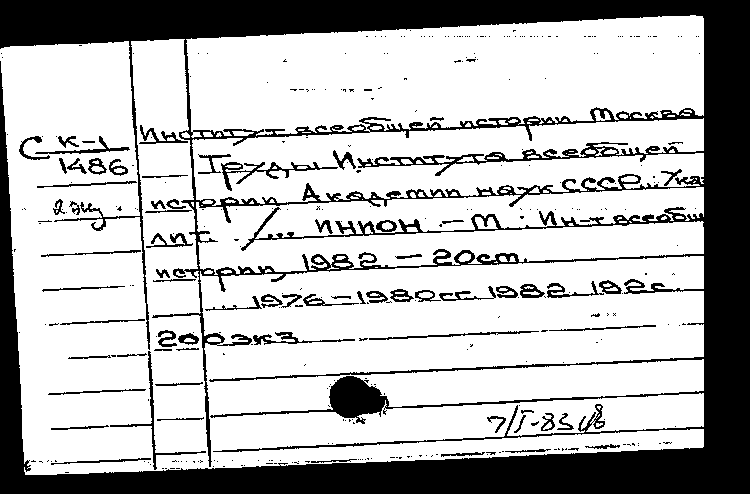 С К-1
1486
2 экз.
Институт всеобщей истории Москва
Труды Института всеобщей
истории Академии наук СССР...: Ука
лит. /... ИНИОН. - М.: Ин-т всеобщ
истории, 1982. - 20 ст.
... 1976-1980гг. 1982. 192с.
200 экз.
7/I-83